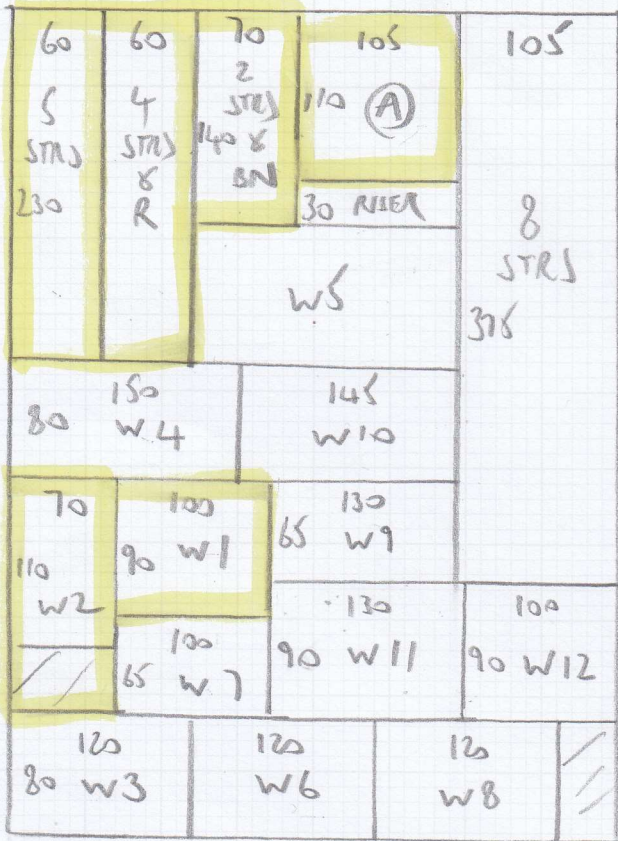 60
5
STRS
230
60
4
STRS
&
R
70
2
STRS
140 &
BN
105
110 A
30 RISER
105
8
STRS
376
W5
150
80 W4
145
W10
70
110
W2
100
90 W1
130
65 W9
100
65 W7
130
90 W11
100
90 W12
120
80 W3
120
W6
120
W8